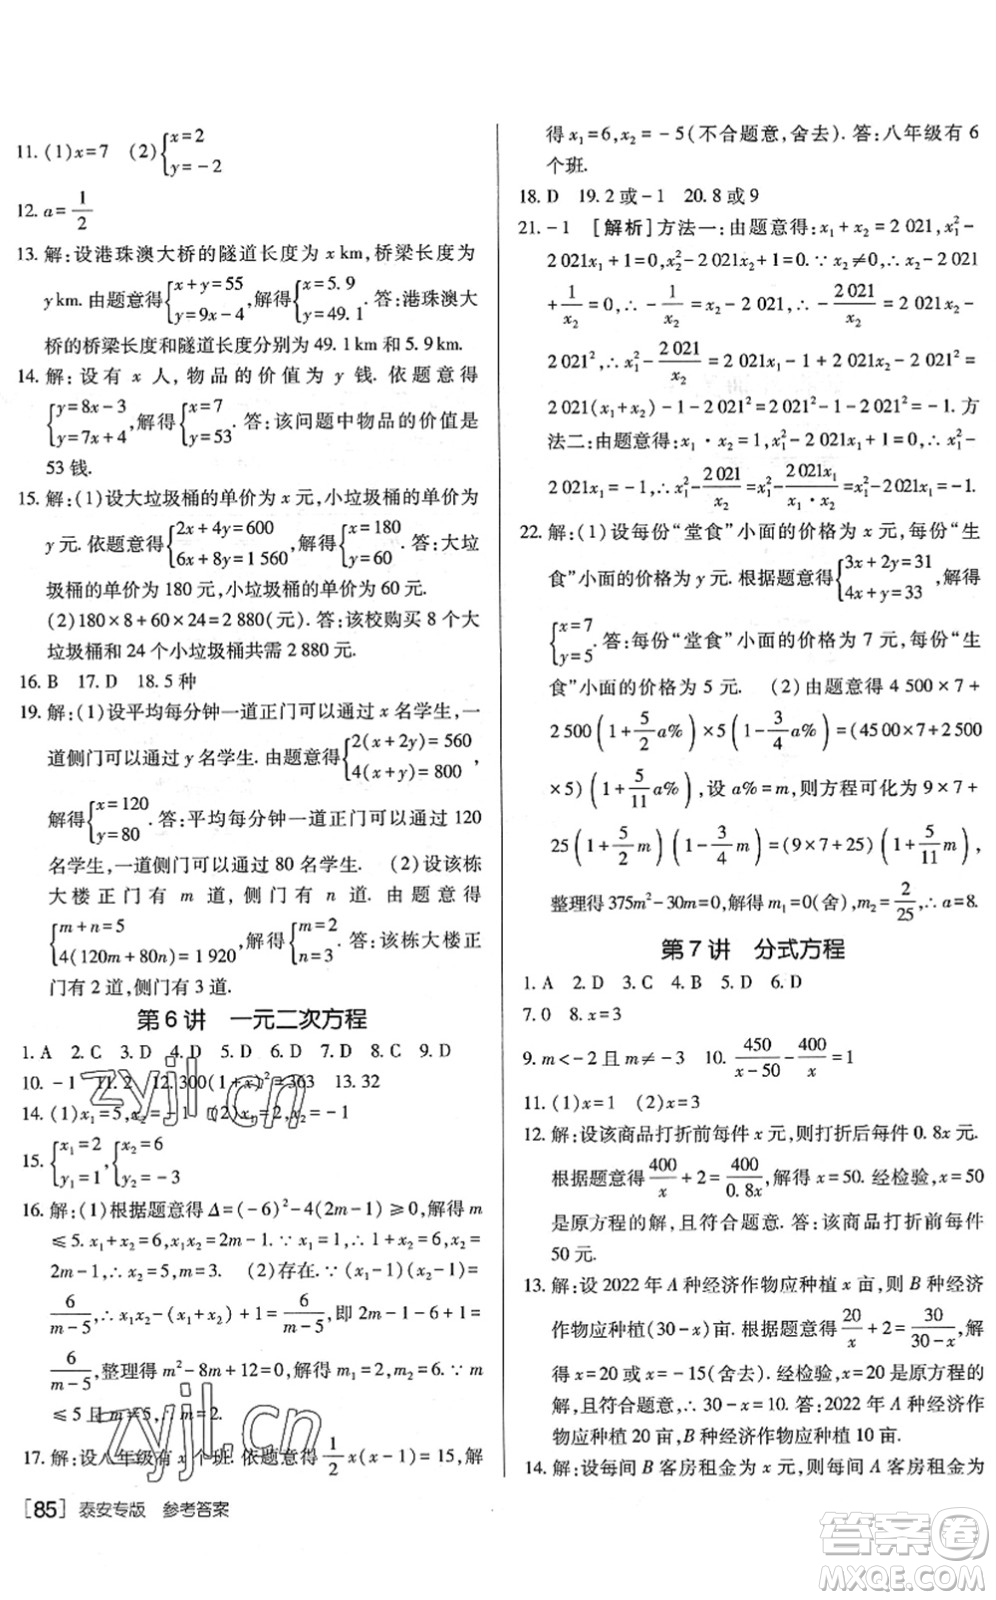 11. (1)x=7 (2){x=2
y=-2
12. a=1/2
13. 解:设港珠澳大桥的隧道长度为 x km,桥梁长度为
y km. 由题意得{x+y=55 y=9x-4,解得{x=5.9 y=49.1. 答:港珠澳大
桥的桥梁长度和隧道长度分别为 49.1 km 和 5.9 km.
14. 解:设有 x 人,物品的价值为 y 钱. 依题意得
{y=8x-3 y=7x+4,解得{x=7 y=53. 答:该问题中物品的价值是
53 钱.
15. 解:(1)设大垃圾桶的单价为 x 元,小垃圾桶的单价为
y 元. 依题意得{2x+4y=600 6x+8y=1 560,解得{x=180 y=60. 答:大垃
圾桶的单价为 180 元,小垃圾桶的单价为 60 元.
(2)180×8+60×24=2 880(元). 答:该校购买 8 个大
垃圾桶和 24 个小垃圾桶共需 2 880 元.
16. B 17. D 18. 5 种
19. 解:(1)设平均每分钟一道正门可以通过 x 名学生,一
道侧门可以通过 y 名学生. 由题意得{2(x+2y)=560 4(x+y)=800,
解得{x=120 y=80. 答:平均每分钟一道正门可以通过 120
名学生,一道侧门可以通过 80 名学生. (2)设该栋
大楼正门有 m 道,侧门有 n 道. 由题意得
{m+n=5 4(120m+80n)=1 920,解得{m=2 n=3. 答:该栋大楼正
门有 2 道,侧门有 3 道.
第 6 讲 一元二次方程
1. A 2. C 3. D 4. D 5. D 6. D 7. D 8. C 9. D
10. -1 11. 2 12. 300(1+x)²=363 13. 32
14. (1)x₁=5,x₂=-1 (2)x₁=2,x₂=-1
15. {x₁=2 y₁=1,{x₂=6 y₂=-3
16. 解:(1)根据题意得 Δ=(-6)²-4(2m-1)≥0,解得 m
≤5. x₁+x₂=6,x₁x₂=2m-1. ∵x₁=1,∴1+x₂=6,x₂=
2m-1,∴x₂=5,m=3. (2)存在. ∵(x₁-1)(x₂-1)=
6/(m-5),∴x₁x₂-(x₁+x₂)+1=6/(m-5),即 2m-1-6+1=
6/(m-5),整理得 m²-8m+12=0,解得 m₁=2,m₂=6. ∵m
≤5 且 m≠5,∴m=2.
17. 解:设八年级有 x 个班. 依题意得1/2x(x-1)=15,解
[85] 泰安专版 参考答案
得 x₁=6,x₂=-5(不合题意,舍去). 答:八年级有 6
个班.
18. D 19. 2 或 -1 20. 8 或 9
21. -1 [解析]方法一:由题意得:x₁+x₂=2 021,x₁²-
2 021x₁+1=0,x₂²-2 021x₂+1=0. ∵x₂≠0,∴x₂-2 021
+1/x₂=0,∴-1/x₂=x₂-2 021,∴-2 021/x₂=2 021x₂-
2 021²,∴x₁²-2 021/x₂=2 021x₁-1+2 021x₂-2 021²=
2 021(x₁+x₂)-1-2 021²=2 021²-1-2 021²=-1. 方
法二:由题意得:x₁·x₂=1,x₁²-2 021x₁+1=0,∴x₁²-
2 021x₁=-1,∴x₁²-2 021/x₂=x₁²-2 021x₁/x₁·x₂=x₁²-2 021x₁=-1.
22. 解:(1)设每份“堂食”小面的价格为 x 元,每份“生
食”小面的价格为 y 元. 根据题意得{3x+2y=31 4x+y=33,解得
{x=7 y=5. 答:每份“堂食”小面的价格为 7 元,每份“生
食”小面的价格为 5 元. (2)由题意得 4 500×7+
2 500(1+5/2a%)×5(1-3/4a%)=(4500×7+2500
×5)(1+5/11a%),设 a%=m,则方程可化为 9×7+
25(1+5/2m)(1-3/4m)=(9×7+25)(1+5/11m),
整理得 375m²-30m=0,解得 m₁=0(舍),m₂=2/25,∴a=8.
第 7 讲 分式方程
1. A 2. D 3. D 4. B 5. D 6. D
7. 0 8. x=3
9. m<-2 且 m≠-3 10. 450/(x-50)-400/x=1
11. (1)x=1 (2)x=3
12. 解:设该商品打折前每件 x 元,则打折后每件 0.8x 元.
根据题意得400/x+2=400/0.8x,解得 x=50. 经检验,x=50
是原方程的解,且符合题意. 答:该商品打折前每件
50 元.
13. 解:设 2022 年 A 种经济作物应种植 x 亩,则 B 种经济
作物应种植(30-x)亩. 根据题意得20/x+2=30/(30-x),解
得 x=20 或 x=-15(舍去). 经检验,x=20 是原方程的
解,且符合题意,∴30-x=10. 答:2022 年 A 种经济作
物应种植 20 亩,B 种经济作物应种植 10 亩.
14. 解:设每间 B 客房租金为 x 元,则每间 A 客房租金为
zyjl.cn
zyjl.cn
答案圈
MXQE.COM